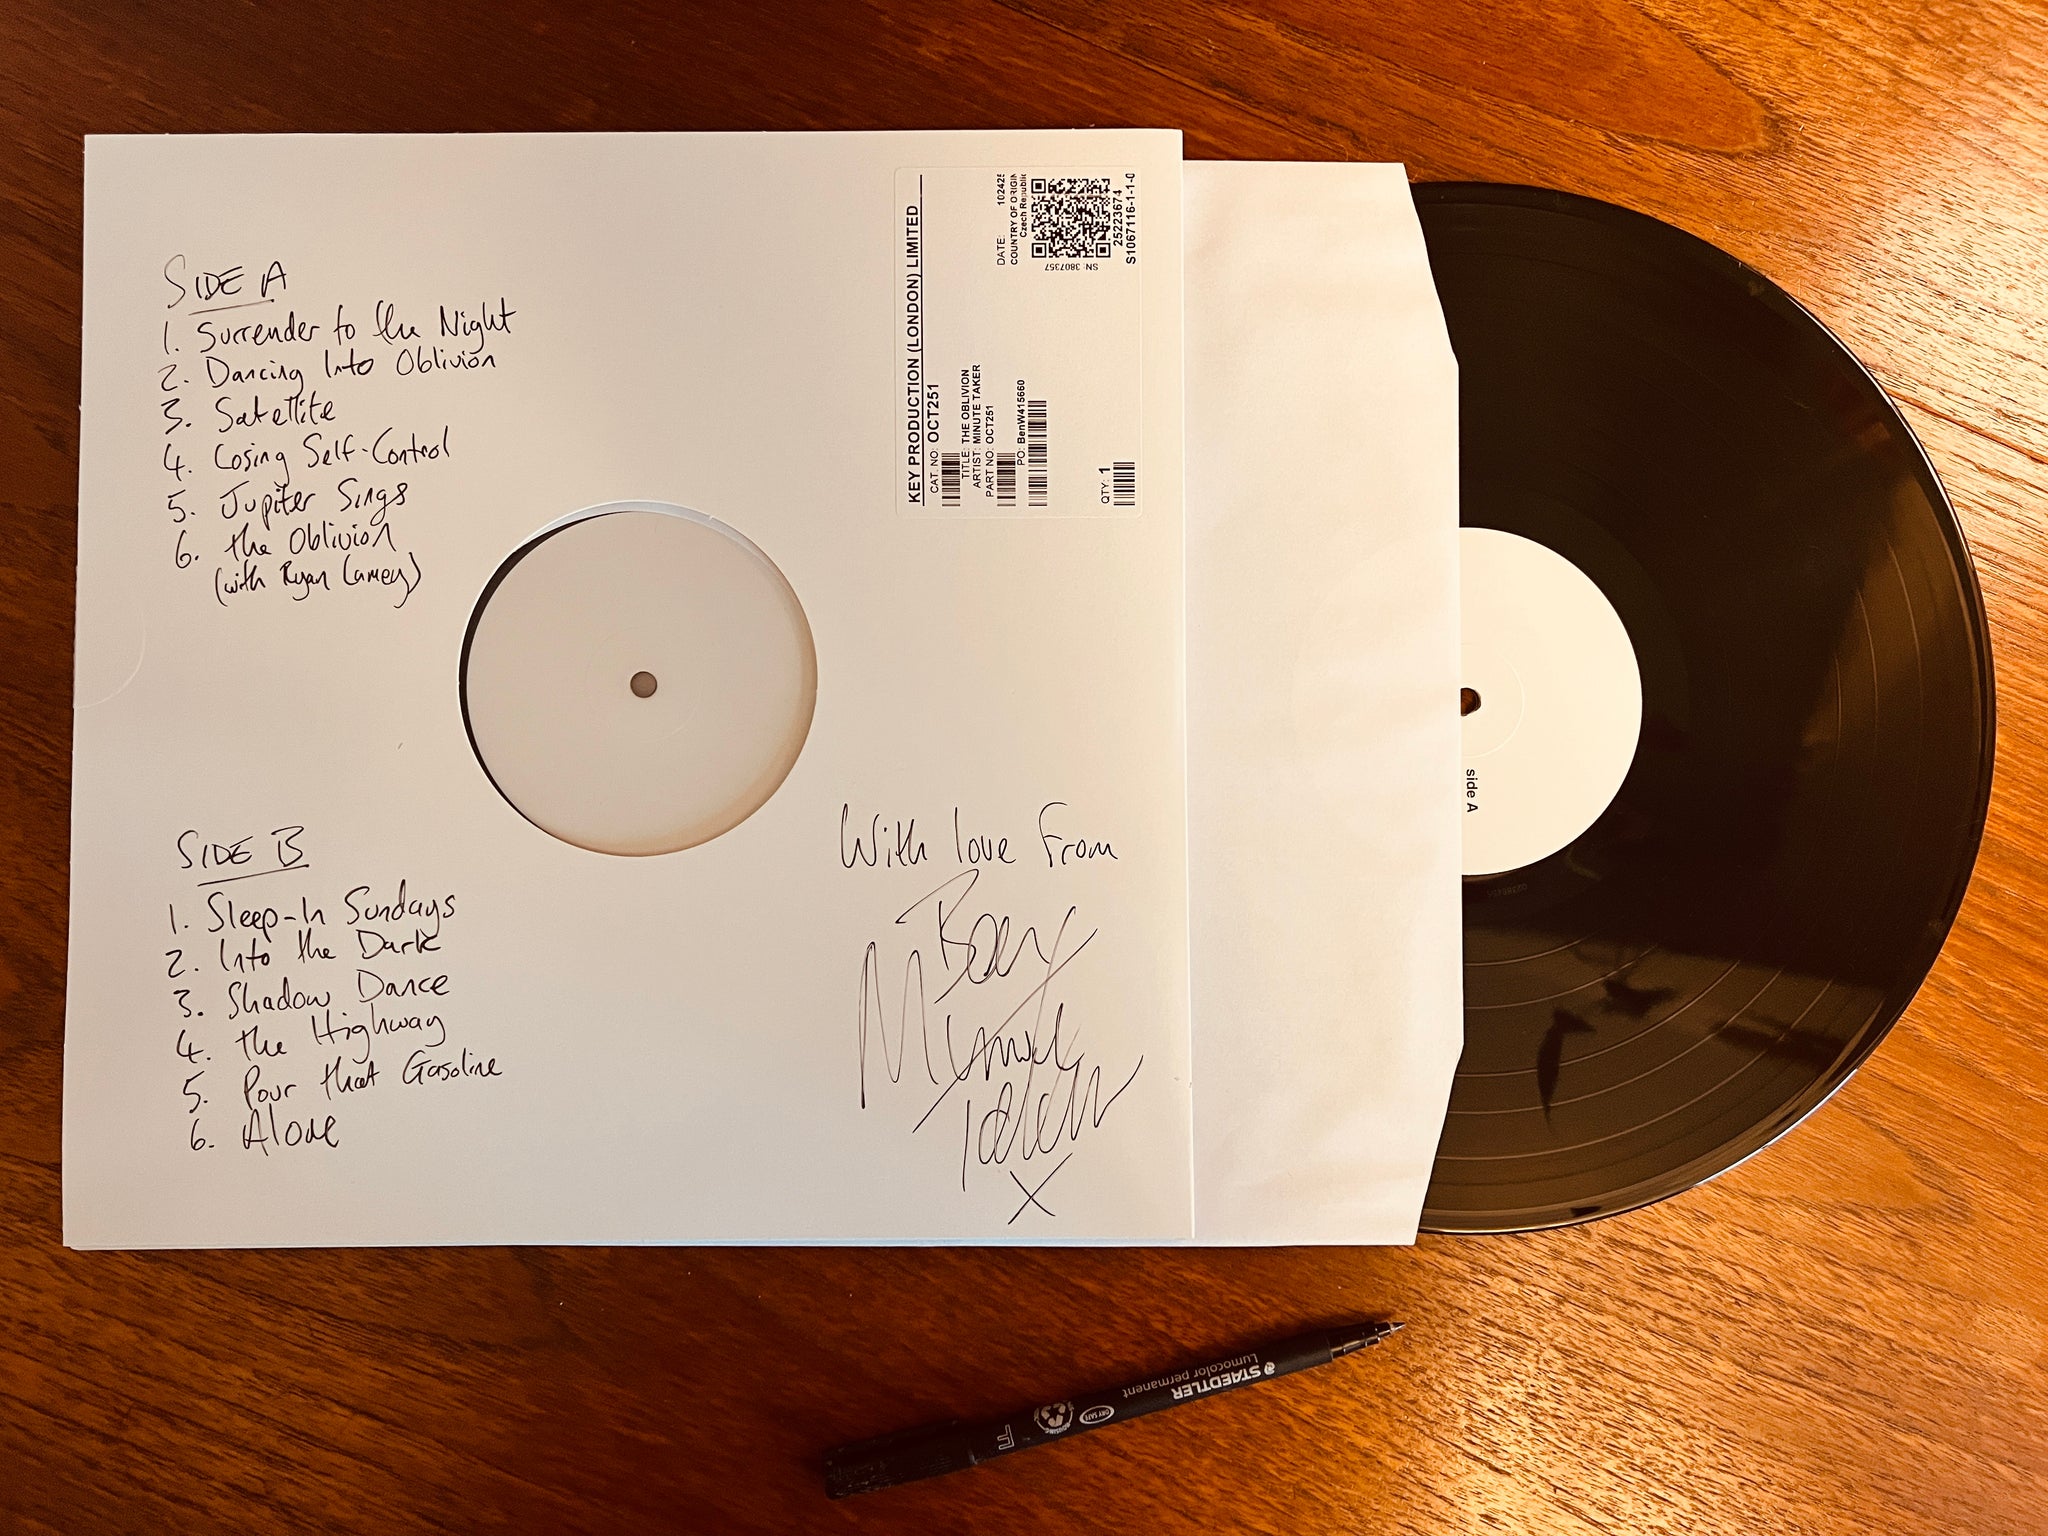 SIDE A
1. Surrender to the Night
2. Dancing Into Oblivion
3. Satellite
4. Losing Self-Control
5. Jupiter Sings
6. the Oblivion
(with Ryan Lamey)
SIDE B
1. Sleep-In Sundays
2. Into the Dark
3. Shadow Dance
4. the Highway
5. Pour that Gasoline
6. Alone
With love from
Ben
Minute
Taker
X
KEY PRODUCTION (LONDON) LIMITED
CAT. NO: OCT251
TITLE: THE OBLIVION
ARTIST: MINUTE TAKER
PART NO: OCT251
PO: BenW415660
QTY: 1
DATE: 102425
COUNTRY OF ORIGIN
Czech Republic
SN: 3807357
25223674
S1067116-1-1-0
side A
STAEDTLER
Lumocolor permanent
DRY SAFE
F